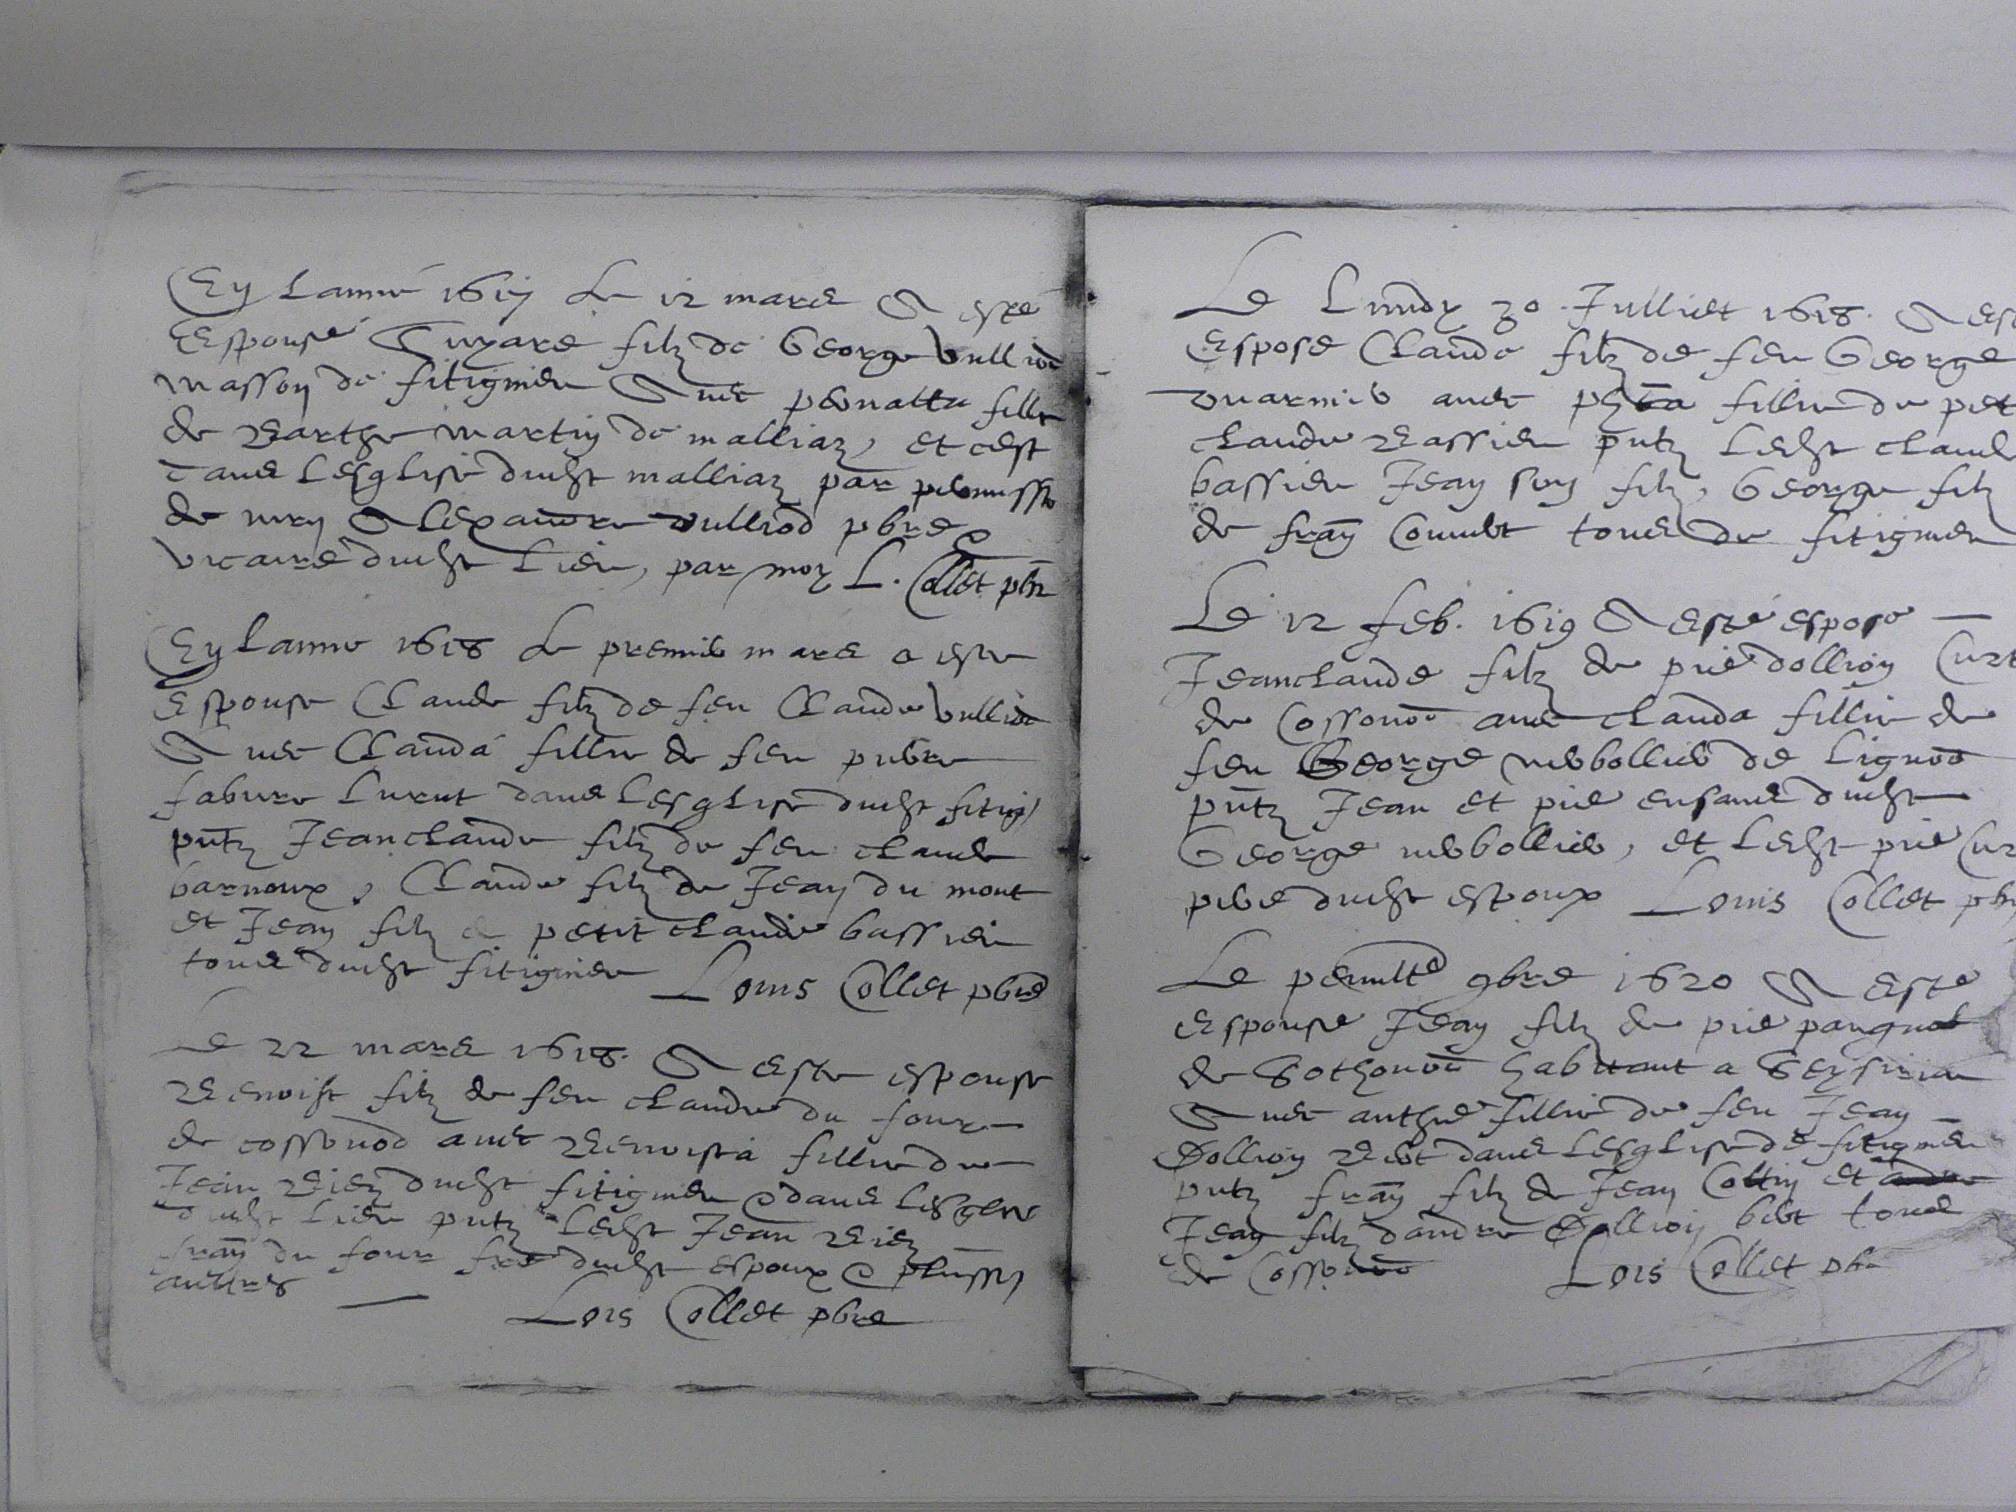 En lanné 1617 le 12 mars A esté
Espousé filz de George Vulliod
masson de fitignieu Avec pernatte fille
de Barthe martin de malliaz, et cest
dans Lesglise dudst malliaz par permission
de mry Alexandre vulliod pbre
vicaire dudst Lieu, par moy L. Collet pbr
En Lanne 1618 le premier mars a este
Espouse Claude filz de feu Claude Vulliod
Avec Clauda fillie de feu pierre
fabvre dans Lesglise dudst fitig
pntz Jeanclaude filz de feu claude
barnoux, Claude filz de Jean du mont
et Jean filz de petit claude bassieu
tous dudst fitignieu Louis Collet pbre
Le 22 mars 1618. A este espouse
Benoist filz de feu claude du four
de cossonod avec Benoista fillie de
Jean Biez dudst fitignieu & dans Lesglise
dudst Lieu pntz Ledst Jean Biez
fran du four fre dudst espoux & plussrs
aultres Lois Collet pbre
Le Lundy 30 Julliet 1618. A est
Espose Claude filz de feu George
avec fillie de pet
claude Bassieu pntz Ledst claud
bassieu Jean son filz, George filz
de fran tous de fitignieu
Le 12 feb. 1619 A esté espose
Jeanclaude filz de pre dollion Curt
de Cossonod avec clauda fillie de
feu George de Lignod
pntz Jean et pre ensans dudst
George et Ledst pre Cur
pere dudst espoux Louis Collet pbr
Le penulte 9bre 1620 A este
Espouse Jean filz de pre
de Sothonod habitant a
Avec anthe fillie de feu Jean
Dollion Bert dans Lesglise de fitignieu
pntz fran filz de Jean Cottin et
Jean filz dandre Dollion bert tous
de Cossonod Lois Collet pbr